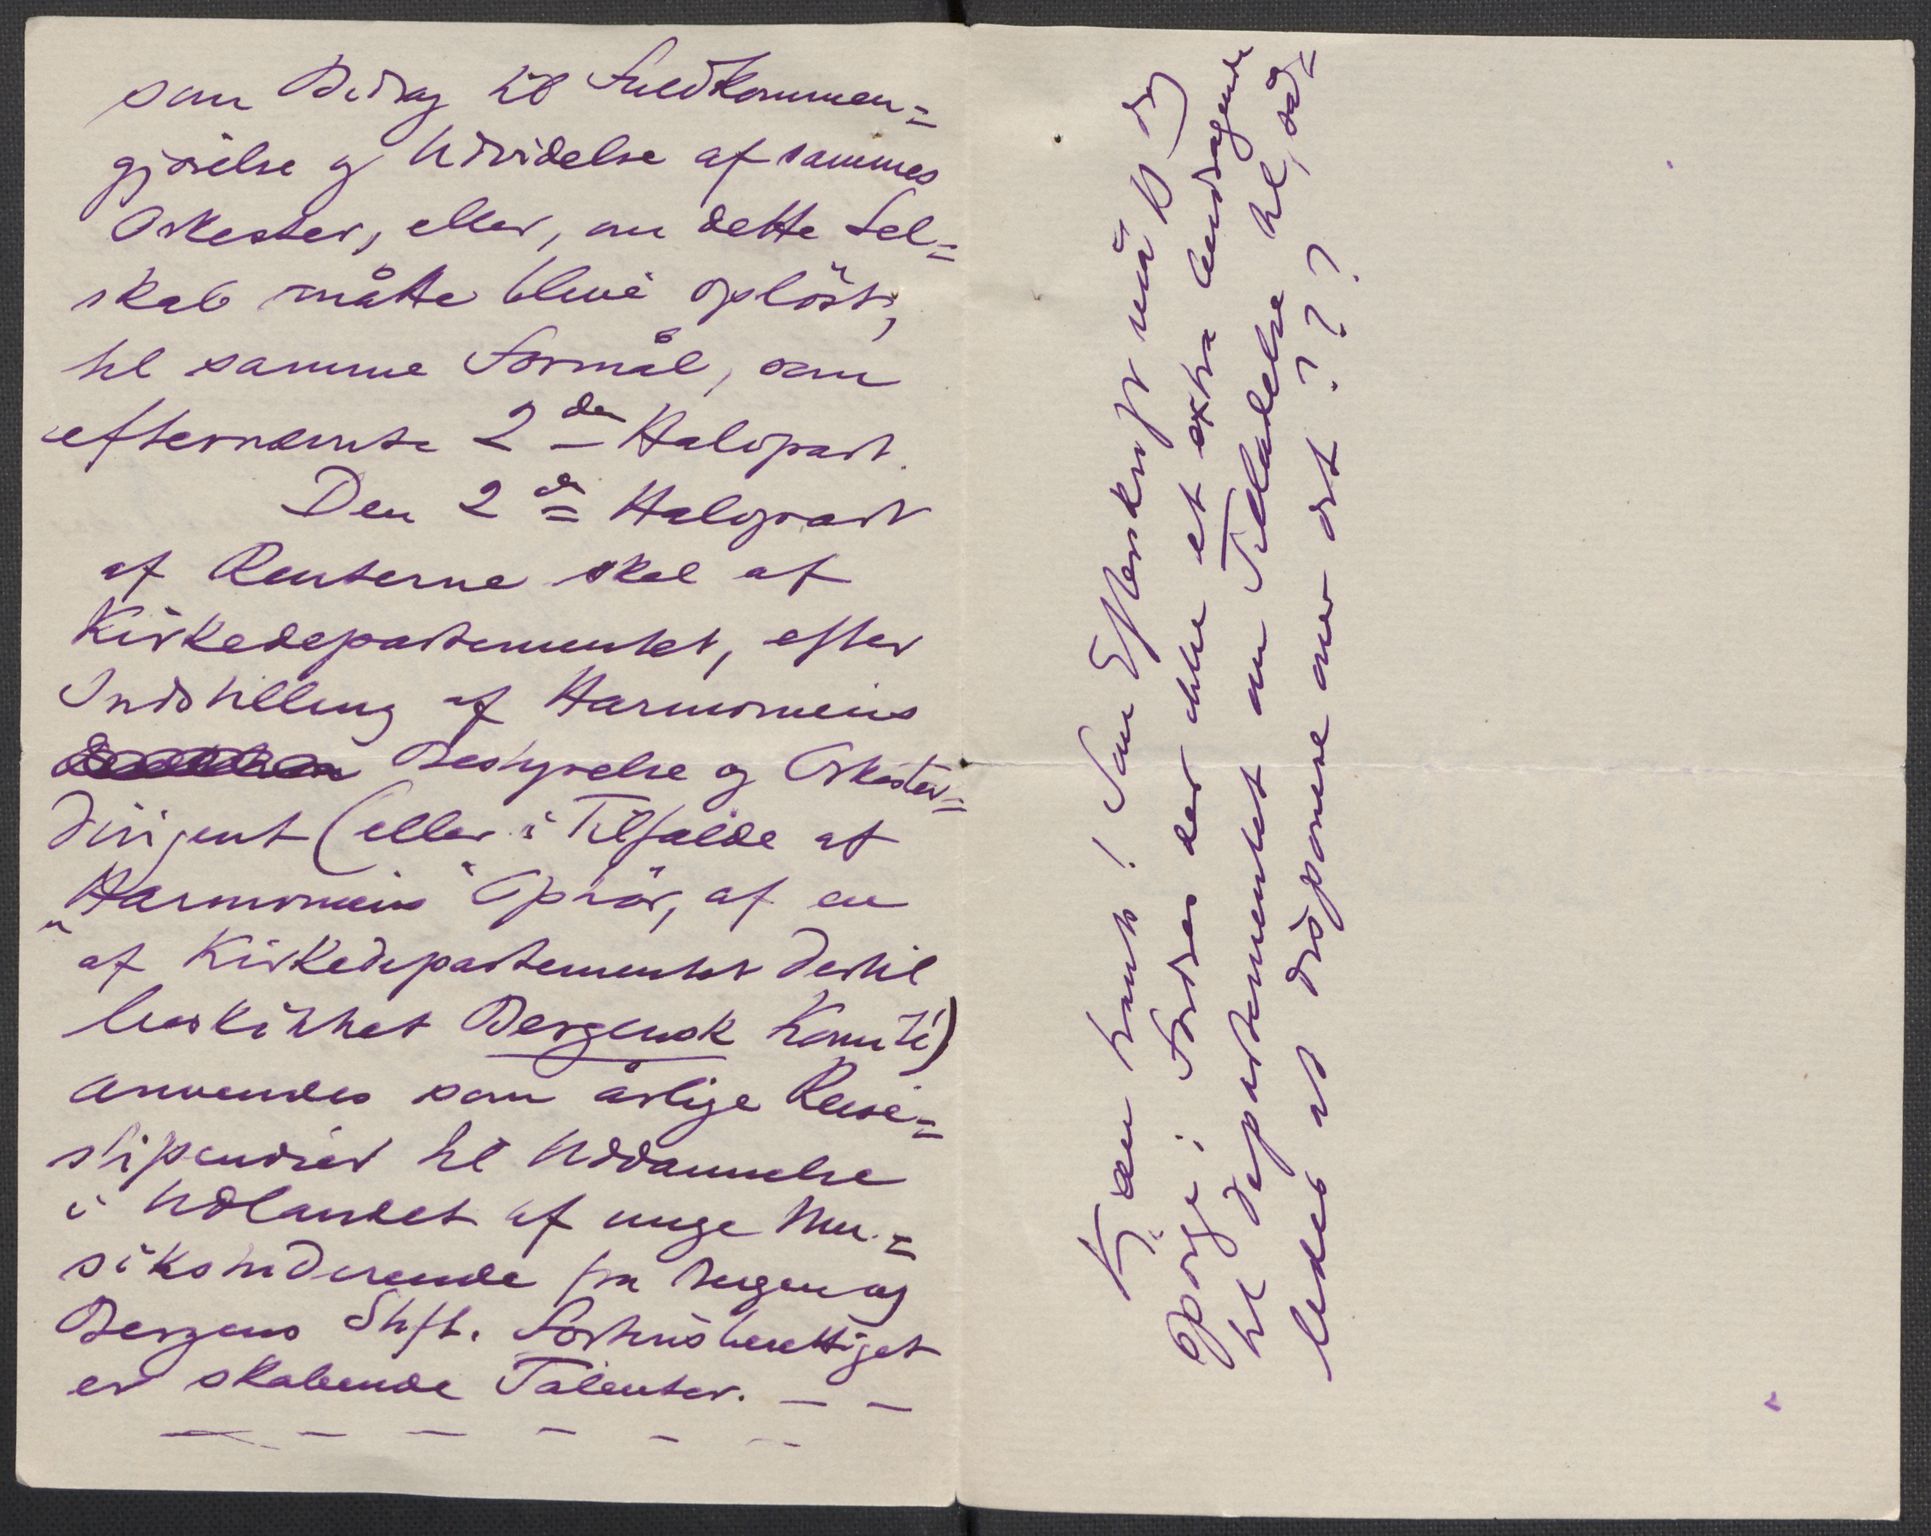 som Bidrag til Fuldkommen=
gjörelse og Udvidelse af sammes
Orkester, eller, om dette Sel=
skab måtte blive oplöst,
til samme Formål, som
efternævnte 2den Halvpart.
Den 2den Halvpart
af Renterne skal af
Kirkedepartementet, efter
Indstilling af Harmoniens
Bestyrelse og Orkester=
dirigent (eller i Tilfælde af
"Harmoniens" Ophör, af en
af Kirkedepartementet dertil
beskikket Bergensk Komité)
anvendes som årlige Reise=
stipendier til Uddannelse
i Udlandet af unge Mu=
sikstuderende fra Bergen og
Bergens Stift. Fortrinsberettiget
er skabende Talenter. _ _
_ _ _ _ _ _
Kjære Frants! Som Efterskrift må jeg
spörge: Fordres der ikke et extra Andragende
til Departementet om Tilladelse til, såd=
ledes at disponere over det???